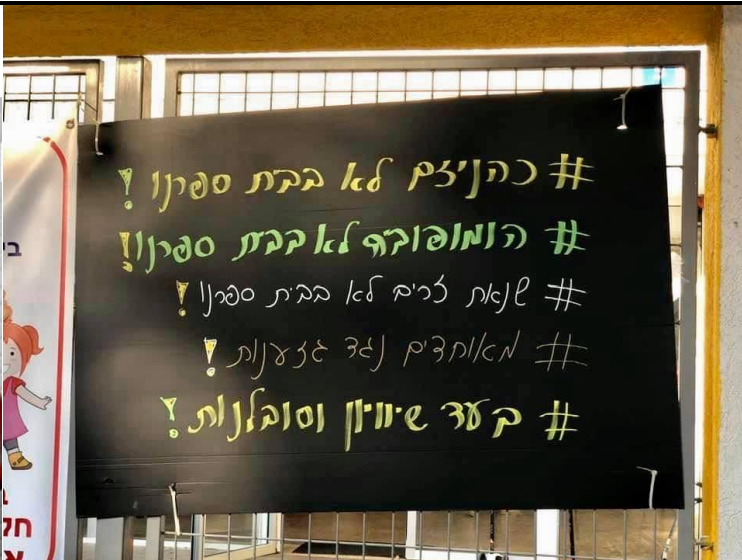 # כהניזם לא בבית ספרנו !
# הומופוביה לא בבית ספרנו !
# שנאת זרים לא בבית ספרנו !
# מאוחדים נגד גזענות !
# בעד שיוויון וסובלנות !